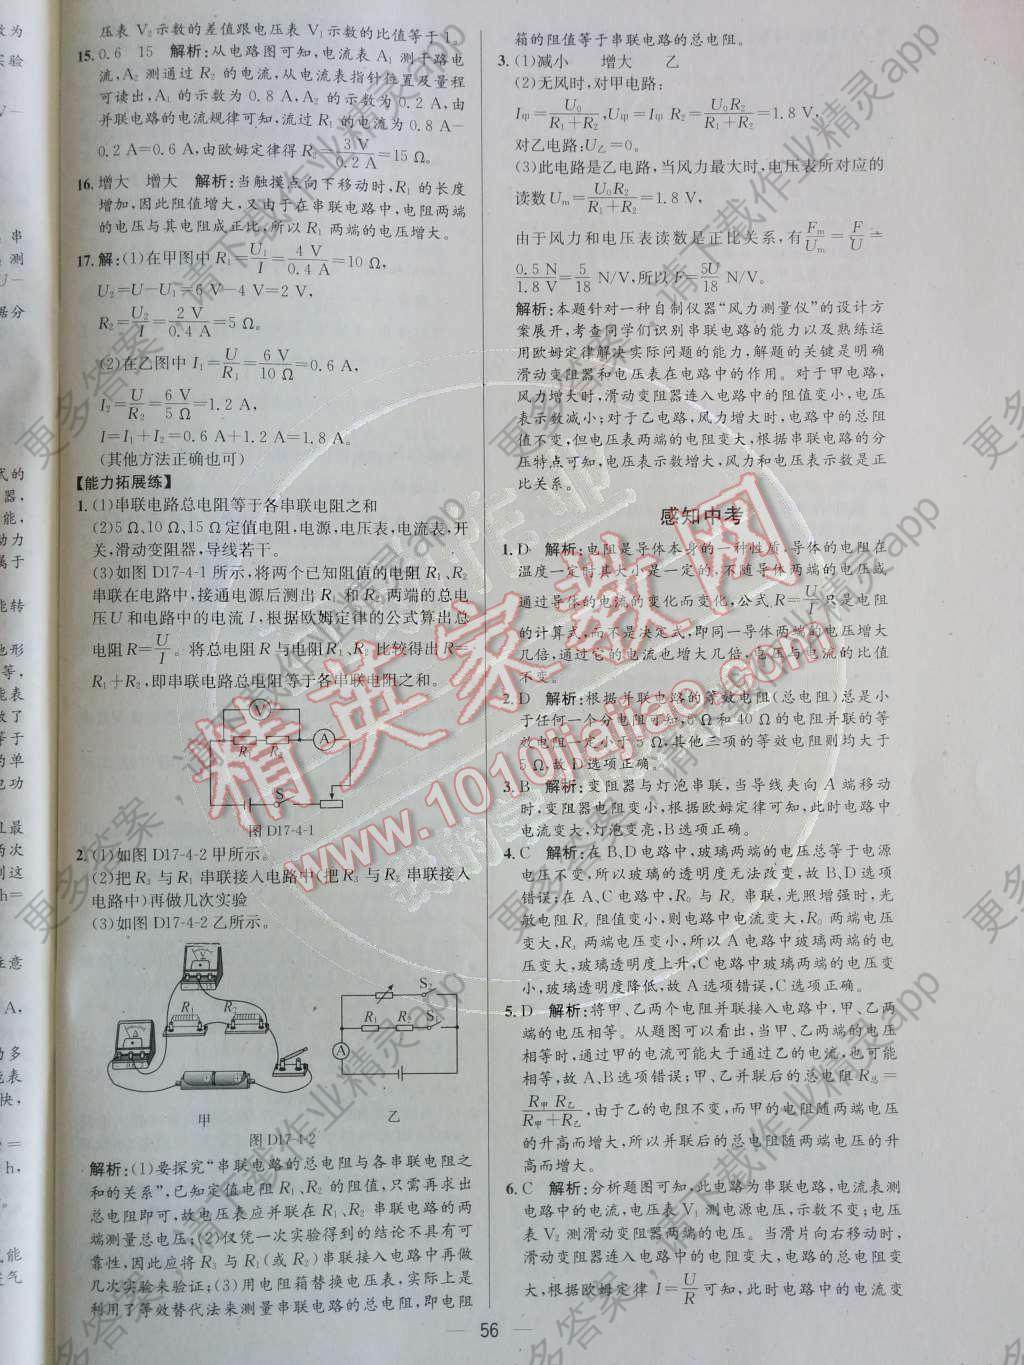 压表 V₂ 示数的差值跟电压表 V₁ 示数的比值等于 1
15. 0.6 15 解析:从电路图可知,电流表 A₁ 测干路电
流,A₂ 测通过 R₂ 的电流,从电流表指针位置及量程
可读出,A₁ 的示数为 0.8 A,A₂ 的示数为 0.2 A,由
并联电路的电流规律可知,流过 R₁ 的电流为 0.8 A-
0.2 A=0.6 A,由欧姆定律得 R₂=3 V/0.2 A=15 Ω。
16. 增大 增大 解析:当触摸点向下移动时,R₁ 的长度
增加,因此阻值增大,又由于在串联电路中,电阻两端
的电压与其电阻成正比,所以 R₁ 两端的电压增大。
17. 解:(1)在甲图中 R₁=U₁/I=4 V/0.4 A=10 Ω,
U₂=U-U₁=6 V-4 V=2 V,
R₂=U₂/I=2 V/0.4 A=5 Ω。
(2)在乙图中 I₁=U/R₁=6 V/10 Ω=0.6 A,
I₂=U/R₂=6 V/5 Ω=1.2 A,
I=I₁+I₂=0.6 A+1.2 A=1.8 A。
(其他方法正确也可)
【能力拓展练】
1. (1)串联电路总电阻等于各串联电阻之和
(2)5 Ω、10 Ω、15 Ω 定值电阻,电源,电压表,电流表,开
关,滑动变阻器,导线若干。
(3)如图 D17-4-1 所示,将两个已知阻值的电阻 R₁、R₂
串联在电路中,接通电源后测出 R₁ 和 R₂ 两端的总电
压 U 和电路中的电流 I,根据欧姆定律的公式算出总
电阻 R=U/I。将总电阻 R 与电阻 R₁、R₂ 比较得出 R=
R₁+R₂,即串联电路总电阻等于各串联电阻之和。
V
R₁ R₂ A
S
图 D17-4-1
2. (1)如图 D17-4-2 甲所示。
(2)把 R₃ 与 R₁ 串联接入电路中(把 R₃ 与 R₂ 串联接入
电路中)再做几次实验
(3)如图 D17-4-2 乙所示。
R₁ R₂
S₂
R₁ R₂ S₁
A
甲 乙
图 D17-4-2
解析:(1)要探究“串联电路的总电阻与各串联电阻之
和的关系”,已知定值电阻 R₁、R₂ 的阻值,只需再求出
总电阻即可,故电压表应并联在 R₁、R₂ 串联电路的两
端测量总电压;(2)仅凭一次实验得到的结论不具有可
靠性,因此应将 R₃ 与 R₁(或 R₂)串联接入电路中再做
几次实验来验证;(3)用电阻箱替换电压表,实际上是
利用了等效替代法来测量串联电路的总电阻,即电阻
箱的阻值等于串联电路的总电阻。
3. (1)减小 增大 乙
(2)无风时,对甲电路:
I甲=U₀/(R₁+R₂),U甲=I甲 R₂=U₀R₂/(R₁+R₂)=1.8 V,
对乙电路:U乙=0。
(3)此电路是乙电路,当风力最大时,电压表所对应的
读数 Uₘ=U₀R₂/(R₁+R₂)=1.8 V,
由于风力和电压表读数是正比关系,有 Fₘ/Uₘ=F/U=
0.5 N/1.8 V=5/18 N/V,所以 F=5U/18 N/V。
解析:本题针对一种自制仪器“风力测量仪”的设计方
案展开,考查同学们识别串联电路的能力以及熟练运
用欧姆定律解决实际问题的能力,解题的关键是明确
滑动变阻器和电压表在电路中的作用。对于甲电路,
风力增大时,滑动变阻器连入电路中的阻值变小,电压
表示数减小;对于乙电路,风力增大时,电路中的总阻
值不变,但电压表两端的电阻变大,根据串联电路的分
压特点可知,电压表示数增大,风力和电压表示数是正
比关系。
感知中考
1. D 解析:电阻是导体本身的一种性质,导体的电阻在
温度一定时其大小是一定的,不随导体两端的电压或
通过导体的电流的变化而变化,公式 R=U/I 只是电阻
的计算式,而不是决定式,即同一导体两端的电压增大
几倍,通过它的电流也增大几倍,电压与电流的比值
不变。
2. D 解析:根据并联电路的等效电阻(总电阻)总是小
于任何一个分电阻可知,5 Ω 和 40 Ω 的电阻并联的等
效电阻一定小于 5 Ω,其他三项的等效电阻则均大于
5 Ω,故 D 选项正确。
3. B 解析:变阻器与灯泡串联,当导线夹向 A 端移动
时,变阻器电阻变小,根据欧姆定律可知,此时电路中
电流变大,灯泡变亮,B 选项正确。
4. C 解析:在 B、D 电路中,玻璃两端的电压总等于电源
电压不变,所以玻璃的透明度无法改变,故 B、D 选项
错误;在 A、C 电路中,R₀ 与 Rₓ 串联,光照增强时,光
敏电阻 Rₓ 阻值变小,则电路中电流变大,R₀ 两端电压
变大,Rₓ 两端电压变小,所以 A 电路中玻璃两端的电
压变大,玻璃透明度上升,C 电路中玻璃两端电压变
小,玻璃透明度降低,故 A 选项错误,C 选项正确。
5. D 解析:将甲、乙两个电阻并联接入电路中,甲、乙两
端的电压相等。从题图可以看出,当甲、乙两端的电压
相等时,通过甲的电流可能大于通过乙的电流,也可能
相等,故 A、B 选项错误;甲、乙并联后的总电阻 R总=
R甲 R乙/(R甲+R乙),由于乙的电阻不变,而甲的电阻随两端电压
的升高而增大,所以并联后的总电阻随两端电压的升
高而增大。
6. C 解析:分析题图可知,此电路为串联电路,电流表测
电路中的电流,电压表 V₁ 测电源电压,示数不变;电压
表 V₂ 测滑动变阻器两端的电压。当滑片向右移动时,
滑动变阻器连入电路中的电阻变大,电路的总电阻变
大,根据欧姆定律 I=U/R 可知,此时电路中的电流变
56
精英家教网
www.1010jiajiao.com
更多答案,请下载作业精灵app